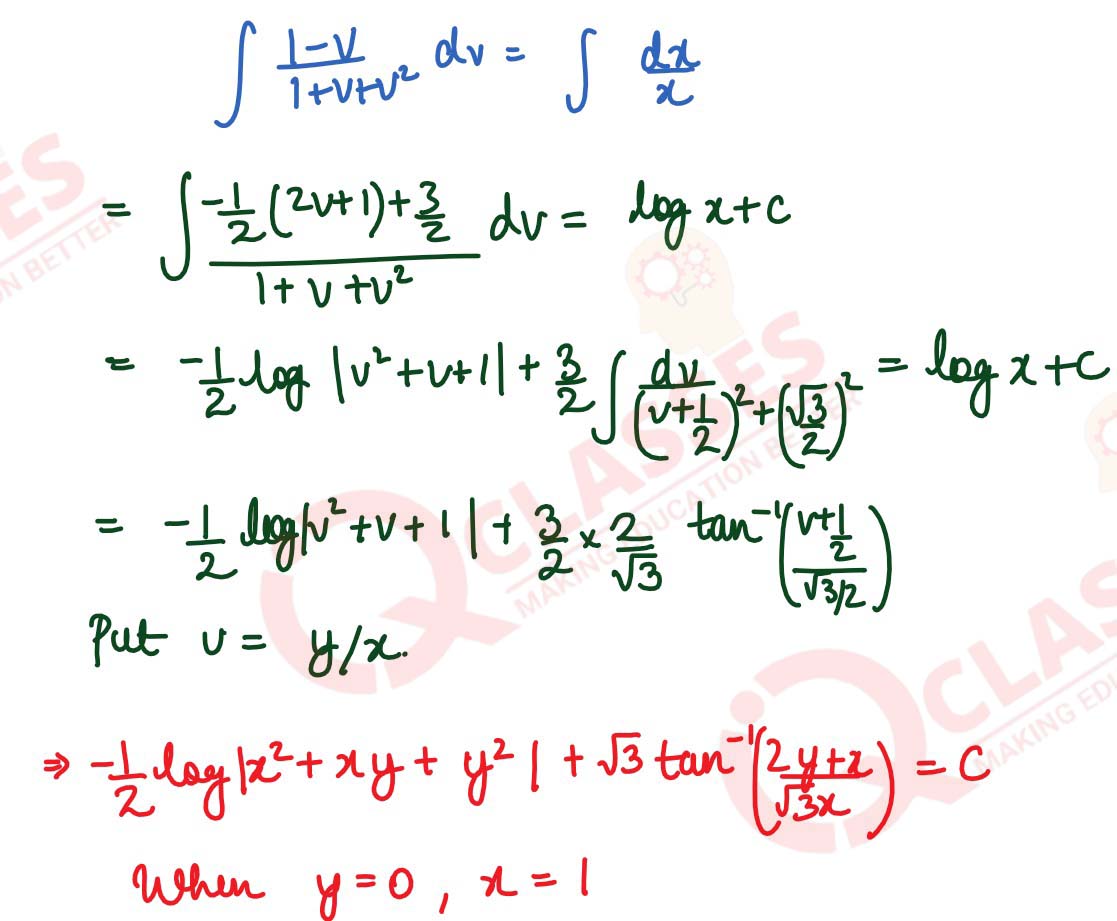 ∫ (1-v)/(1+v+v²) dv = ∫ dx/x
= ∫ (-1/2(2v+1)+3/2)/(1+v+v²) dv = log x+c
= -1/2 log |v²+v+1| + 3/2 ∫ dv/((v+1/2)²+(√3/2)²) = log x+c
= -1/2 log|v²+v+1| + 3/2 × 2/√3 tan⁻¹((v+1/2)/(√3/2))
Put v = y/x.
⇒ -1/2 log|x²+xy+y²| + √3 tan⁻¹((2y+x)/(√3x)) = C
When y=0, x=1
CLASSES
MAKING EDUCATION BETTER